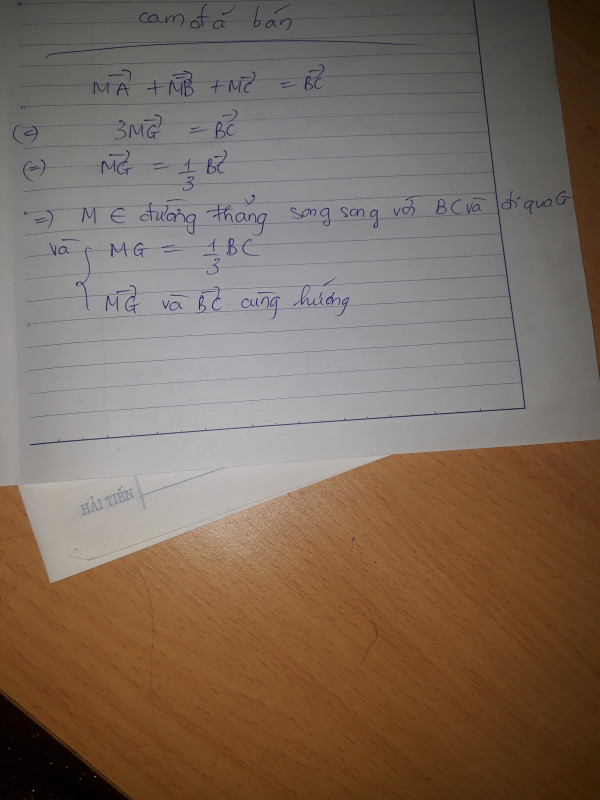 cam ơn các bạn
MA⃗ + MB⃗ + MC⃗ = BC⃗
(=) 3MG⃗ = BC⃗
(=) MG⃗ = 1/3 BC⃗
=) M ∈ đường thẳng song song với BC và đi qua G
và { MG = 1/3 BC
MG⃗ và BC⃗ cùng hướng
HẢI TIẾN